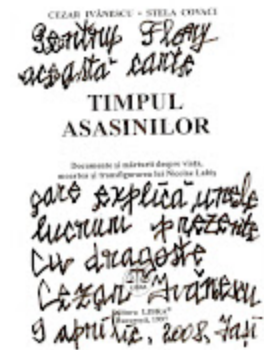 CEZAR IVĂNESCU • STELA COVACI
Pentru Flory
această carte
TIMPUL
ASASINILOR
Documente și mărturii despre viața,
moartea și transfigurarea lui Nicolae Labiș
care explică unele
lucruri prezente
Cu dragoste
Cezar Ivănescu
Editura LIBRA
București, 1997
9 aprilie, 2008, Iași